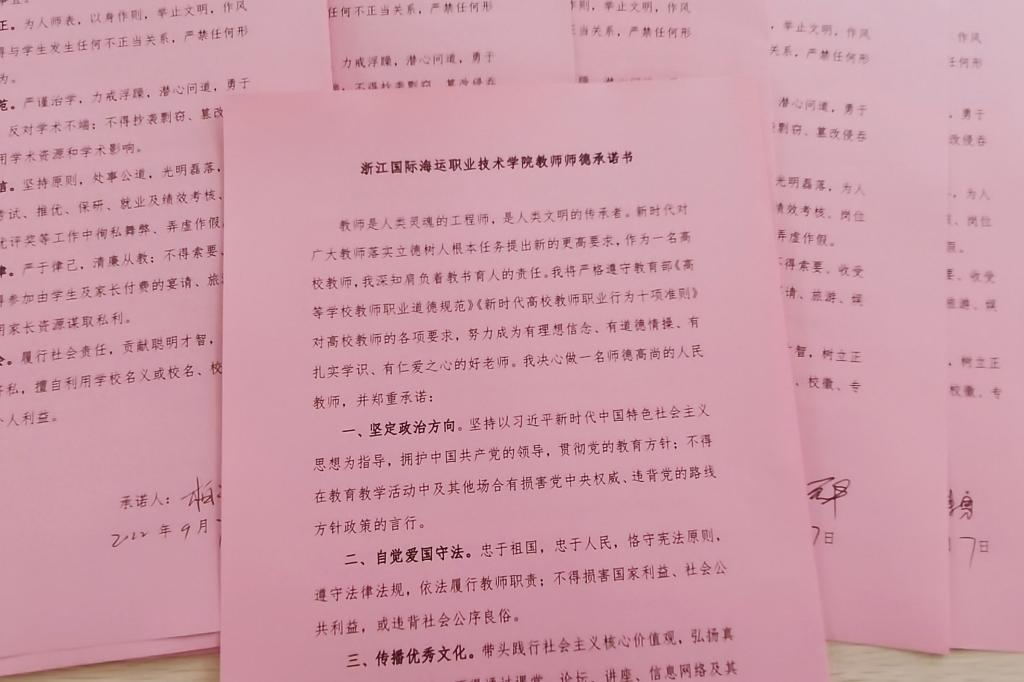 正。为人师表，以身作则，举止文明，作风
得与学生发生任何不正当关系，严禁任何形
为。
范。严谨治学，力戒浮躁，潜心问道，勇于
反对学术不端；不得抄袭剽窃、篡改
用学术资源和学术影响。
信。坚持原则，处事公道，光明磊落，
考试、推优、保研、就业及绩效考核、
优评奖等工作中徇私舞弊、弄虚作假
律。严于律己，清廉从教；不得索要、
得参加由学生及家长付费的宴请、旅
用家长资源谋取私利。
履行社会责任，贡献聪明才智，
济私，擅自利用学校名义或校名、校
个人利益。
承诺人：
2022年9月7
任何不正当关系，严禁任何形
力戒浮躁，潜心问道，勇于
不得抄袭剽窃、篡改侵吞
作则，举止文明，作风
正当关系，严禁任何形
浙江国际海运职业技术学院教师师德承诺书
教师是人类灵魂的工程师，是人类文明的传承者。新时代对
广大教师落实立德树人根本任务提出新的更高要求，作为一名高
校教师，我深知肩负着教书育人的责任。我将严格遵守教育部《高
等学校教师职业道德规范》《新时代高校教师职业行为十项准则》
对高校教师的各项要求，努力成为有理想信念、有道德情操、有
扎实学识、有仁爱之心的好老师。我决心做一名师德高尚的人民
教师，并郑重承诺：
一、坚定政治方向。坚持以习近平新时代中国特色社会主义
思想为指导，拥护中国共产党的领导，贯彻党的教育方针；不得
在教育教学活动中及其他场合有损害党中央权威、违背党的路线
方针政策的言行。
二、自觉爱国守法。忠于祖国，忠于人民，恪守宪法原则，
遵守法律法规，依法履行教师职责；不得损害国家利益、社会公
共利益，或违背社会公序良俗。
三、传播优秀文化。带头践行社会主义核心价值观，弘扬真
不得通过课堂、论坛、讲座、信息网络及其
，举止文明，作风
关系，严禁任何形
潜心问道，勇于
剽窃、篡改侵吞
光明磊落，为人
绩效考核、岗位
弄虚作假。
不得索要、收受
请、旅游、娱
才智，树立正
、校徽、专
7日
作风
任何形
勇于
改侵吞
，为人
、岗位
假。
要、收受
旅游、娱
树立正
校徽、专
7日